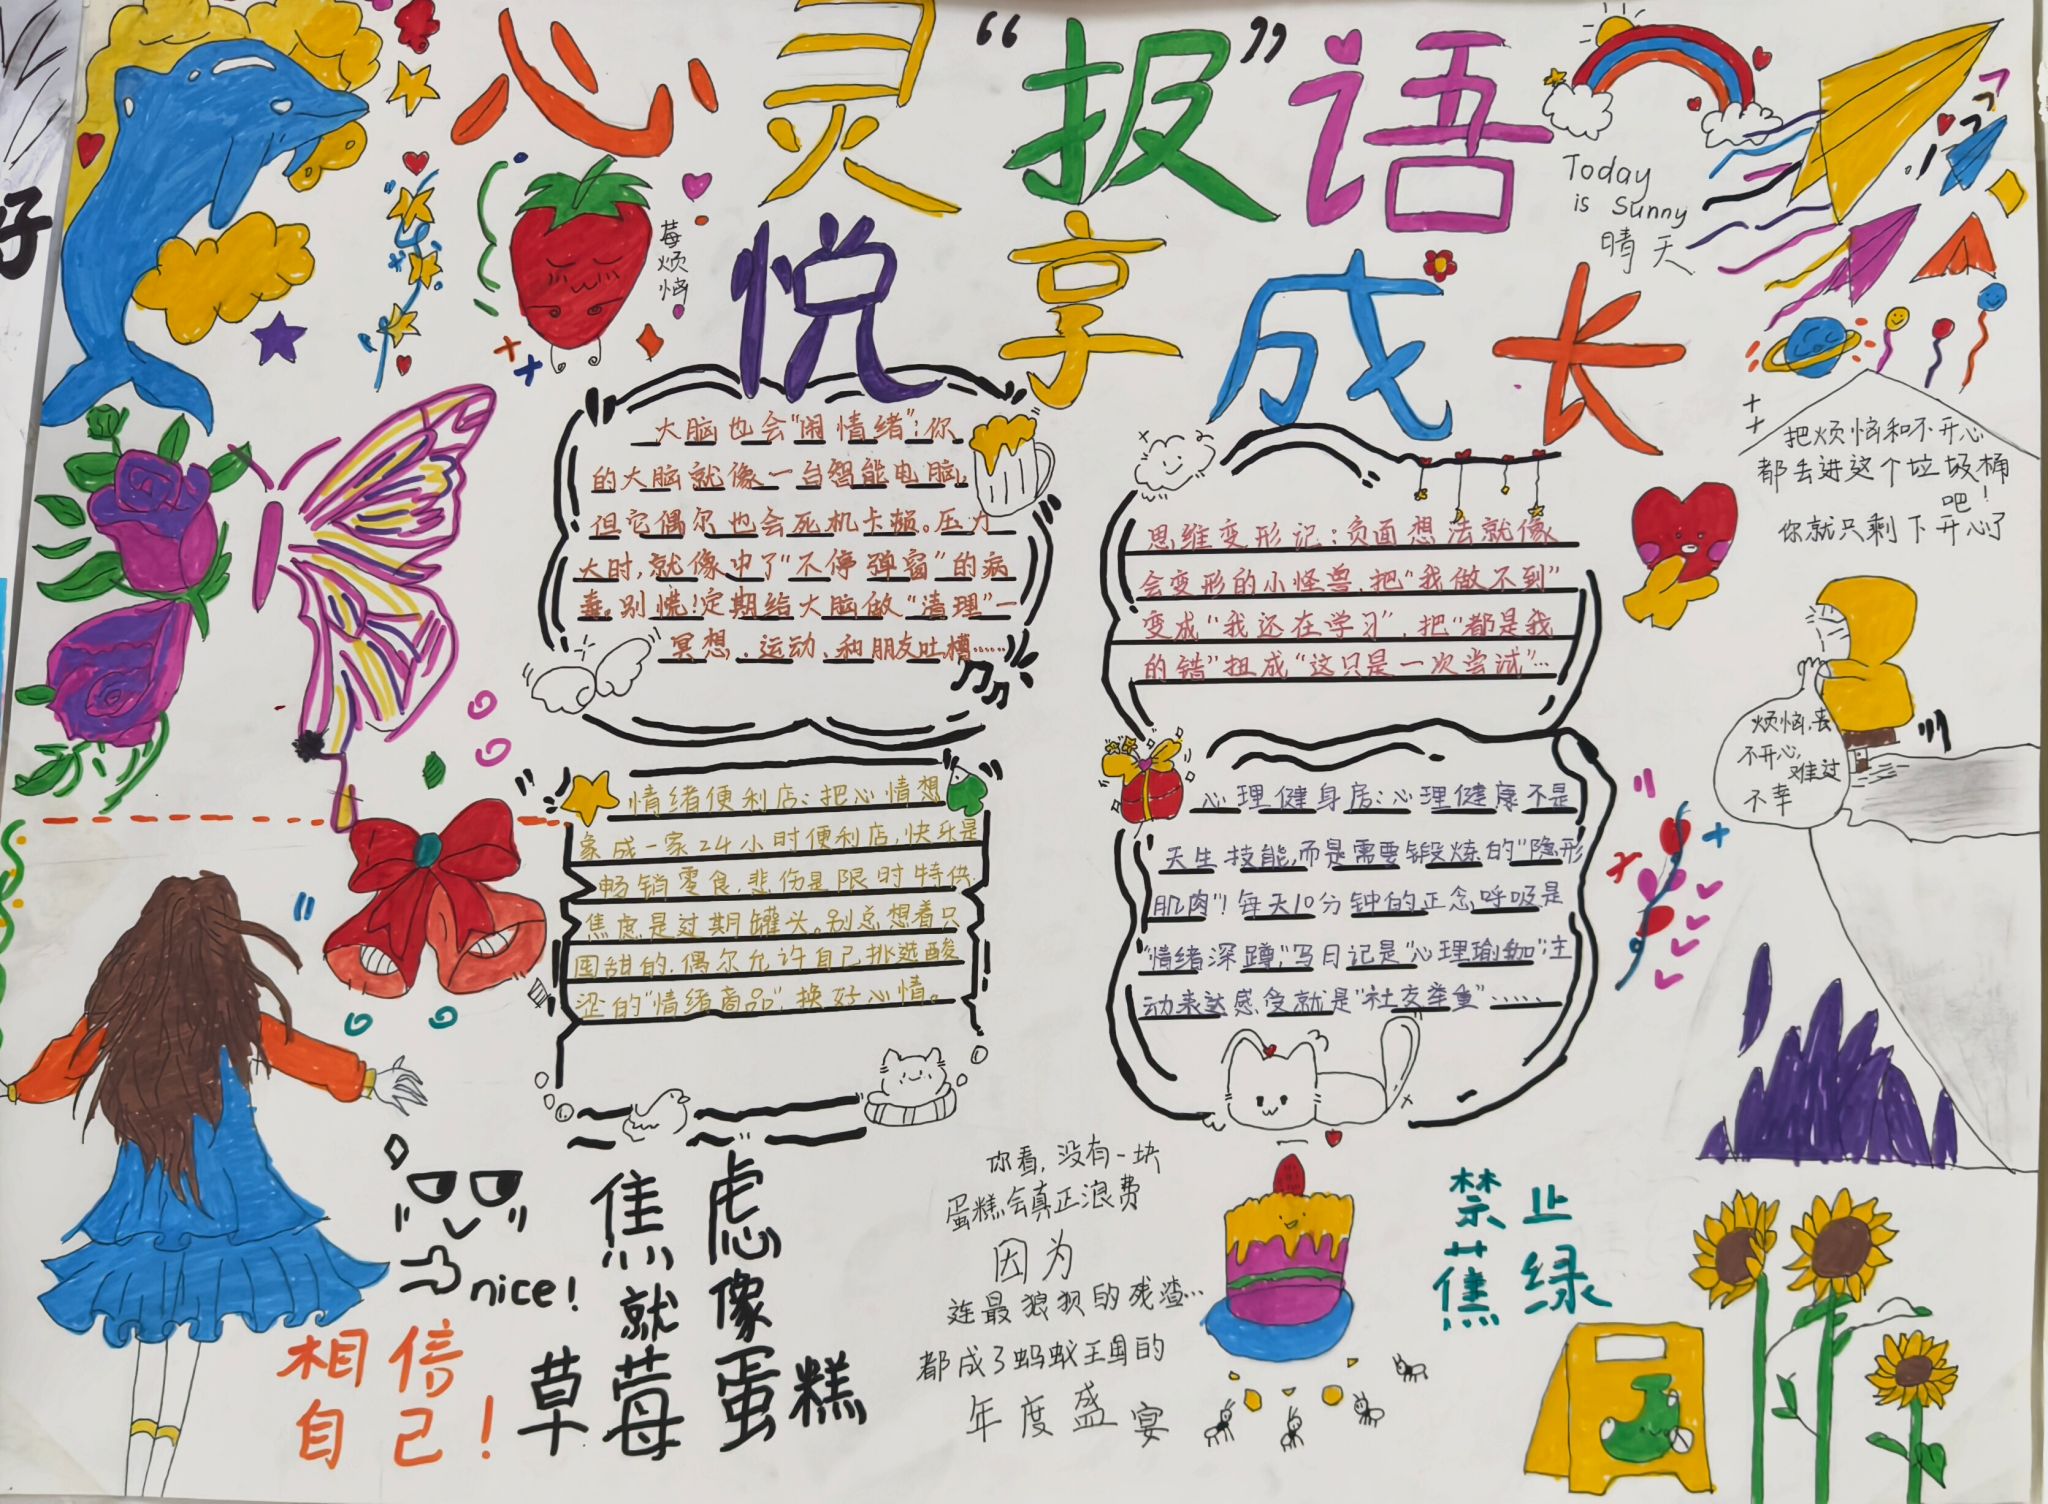 好
心灵“报”语
悦享成长
莓
烦
恼
Today
is Sunny
晴天
大脑也会“闹情绪”:你
的大脑就像一台智能电脑,
但它偶尔也会死机卡顿。压力
大时,就像中了“不停弹窗”的病
毒。别慌!定期给大脑做“清理”—
冥想、运动、和朋友吐槽……
思维变形记:负面想法就像
会变形的小怪兽,把“我做不到”
变成“我还在学习”,把“都是我
的错”扭成“这只是一次尝试”…
情绪便利店:把心情想
象成一家24小时便利店,快乐是
畅销零食,悲伤是限时特供,
焦虑是过期罐头。别总想着只
囤甜的,偶尔允许自己挑选酸
涩的“情绪商品”,换好心情。
心理健身房:心理健康不是
天生技能,而是需要锻炼的“隐形
肌肉”!每天10分钟的正念呼吸是
“情绪深蹲”;写日记是“心理瑜伽”;主
动表达感受就是“社交举重”……
把烦恼和不开心
都丢进这个垃圾桶
吧!
你就只剩下开心了
烦恼,丧
不开心,
难过
不幸
nice!
相信
自己!
焦虑
就像
草莓蛋糕
你看,没有一块
蛋糕会真正浪费
因为
连最狼狈的残渣…
都成了蚂蚁王国的
年度盛宴
禁止
蕉绿